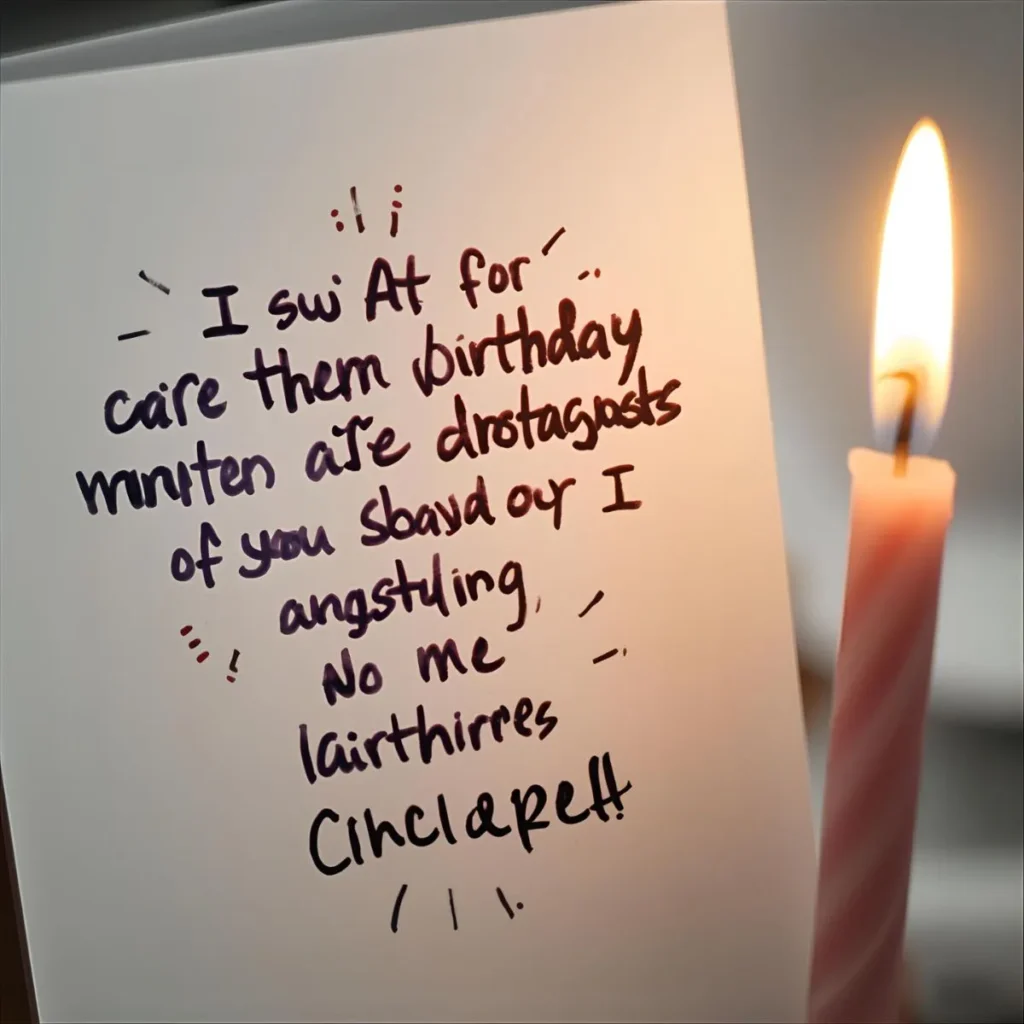 I swi At for
caire them birthday
minten are drotagososts
of you Sbavd oyr I
angstuling,
No me
lairthirres
Cinclapett